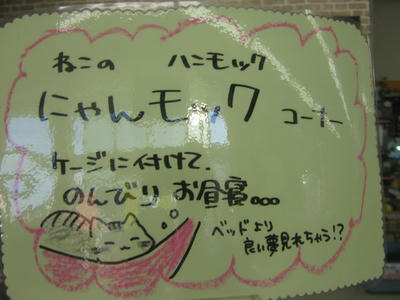 ねこの ハンモック
にゃんモック コーナー
ケージに付けて、
のんびり お昼寝。。。
ベッドより
良い夢見れちゃう!?